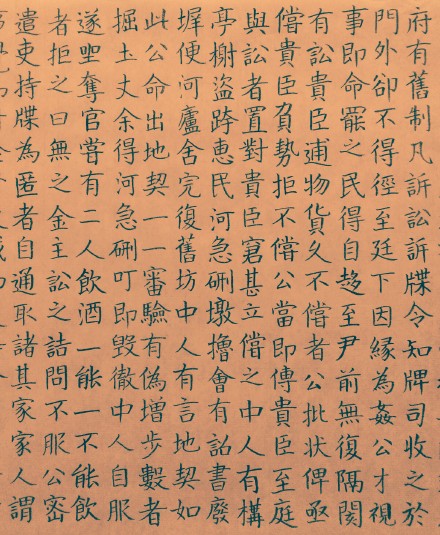 府有舊制凡訴訟訴牒令知牌司收之於
門外卻不得徑至廷下因緣為姦公才視
事即命罷之民得自趍至尹前無復隔閡
有訟貴臣逋物貨久不償者公批狀俾亟
償貴臣負勢拒不償公當即傳貴臣至庭
與訟者置對貴臣窘甚立償之中人有構
亭榭盜跨惠民河急硎墩擼會有詔書廢
墀便河廬舍完復舊坊中人有言地契如
此公命出地契一一審驗有偽增步數者
掘土丈余得河急硎叮即毀徹中人自服
遂坐奪官嘗有二人飲酒一能一不能飲
者拒之曰無之金主訟之詰問不服公密
遣吏持牒為匿者自通取諸其家家人謂